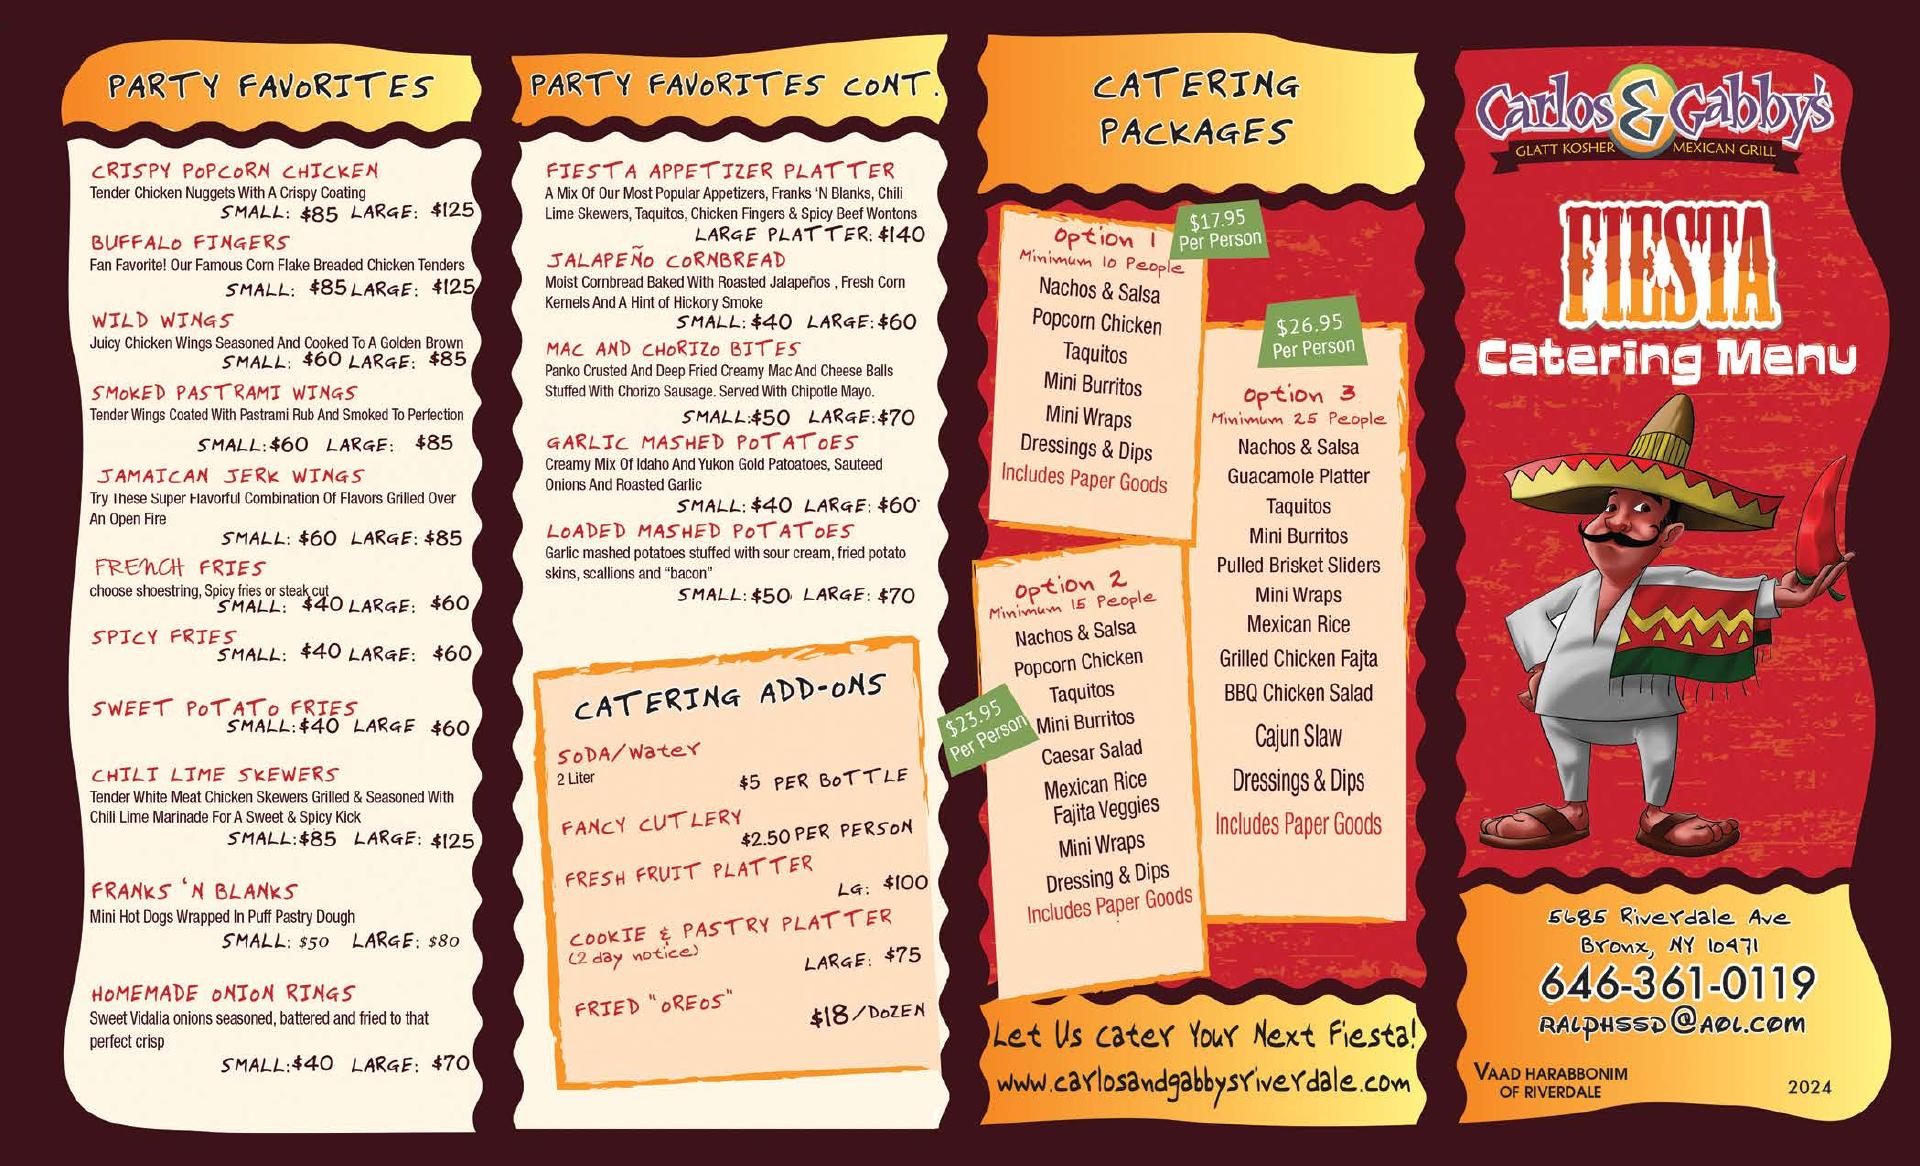 PARTY FAVORITES
CRISPY POPCORN CHICKEN
Tender Chicken Nuggets With A Crispy Coating
SMALL: $85 LARGE: $125
BUFFALO FINGERS
Fan Favorite! Our Famous Corn Flake Breaded Chicken Tenders
SMALL: $85 LARGE: $125
WILD WINGS
Juicy Chicken Wings Seasoned And Cooked To A Golden Brown
SMALL: $60 LARGE: $85
SMOKED PASTRAMI WINGS
Tender Wings Coated With Pastrami Rub And Smoked To Perfection
SMALL: $60 LARGE: $85
JAMAICAN JERK WINGS
Try These Super Flavorful Combination Of Flavors Grilled Over
An Open Fire
SMALL: $60 LARGE: $85
FRENCH FRIES
choose shoestring, Spicy fries or steak cut
SMALL: $40 LARGE: $60
SPICY FRIES
SMALL: $40 LARGE: $60
SWEET POTATO FRIES
SMALL: $40 LARGE $60
CHILI LIME SKEWERS
Tender White Meat Chicken Skewers Grilled & Seasoned With
Chili Lime Marinade For A Sweet & Spicy Kick
SMALL: $85 LARGE: $125
FRANKS 'N BLANKS
Mini Hot Dogs Wrapped In Puff Pastry Dough
SMALL: $50 LARGE: $80
HOMEMADE ONION RINGS
Sweet Vidalia onions seasoned, battered and fried to that
perfect crisp
SMALL: $40 LARGE: $70
PARTY FAVORITES CONT.
FIESTA APPETIZER PLATTER
A Mix Of Our Most Popular Appetizers, Franks 'N Blanks, Chili
Lime Skewers, Taquitos, Chicken Fingers & Spicy Beef Wontons
LARGE PLATTER: $140
JALAPEÑO CORNBREAD
Moist Cornbread Baked With Roasted Jalapeños , Fresh Corn
Kernels And A Hint of Hickory Smoke
SMALL: $40 LARGE: $60
MAC AND CHORIZO BITES
Panko Crusted And Deep Fried Creamy Mac And Cheese Balls
Stuffed With Chorizo Sausage. Served With Chipotle Mayo.
SMALL: $50 LARGE: $70
GARLIC MASHED POTATOES
Creamy Mix Of Idaho And Yukon Gold Patoatoes, Sauteed
Onions And Roasted Garlic
SMALL: $40 LARGE: $60
LOADED MASHED POTATOES
Garlic mashed potatoes stuffed with sour cream, fried potato
skins, scallions and "bacon"
SMALL: $50 LARGE: $70
CATERING ADD-ONS
SODA/Water
2 Liter
$5 PER BOTTLE
FANCY CUTLERY
$2.50 PER PERSON
FRESH FRUIT PLATTER
LG: $100
COOKIE & PASTRY PLATTER
(2 day notice)
LARGE: $75
FRIED "OREOS"
$18/DOZEN
CATERING
PACKAGES
$17.95
Per Person
Option 1
Minimum 10 People
Nachos & Salsa
Popcorn Chicken
Taquitos
Mini Burritos
Mini Wraps
Dressings & Dips
Includes Paper Goods
$23.95
Per Person
Option 2
Minimum 15 People
Nachos & Salsa
Popcorn Chicken
Taquitos
Mini Burritos
Caesar Salad
Mexican Rice
Fajita Veggies
Mini Wraps
Dressing & Dips
Includes Paper Goods
$26.95
Per Person
Option 3
Minimum 25 People
Nachos & Salsa
Guacamole Platter
Taquitos
Mini Burritos
Pulled Brisket Sliders
Mini Wraps
Mexican Rice
Grilled Chicken Fajta
BBQ Chicken Salad
Cajun Slaw
Dressings & Dips
Includes Paper Goods
Let Us Cater Your Next Fiesta!
www.carlosandgabbysriverdale.com
Carlos & Gabby's
GLATT KOSHER MEXICAN GRILL
FIESTA
Catering Menu
5685 Riverdale Ave
Bronx, NY 10471
646-361-0119
RALPHSSD@AOL.COM
VAAD HARABBONIM
OF RIVERDALE
2024